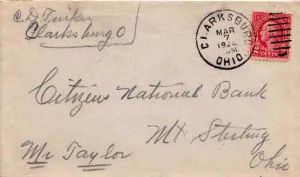 C. D. Tuikar
Clarksburg O
CLARKSBURG
MAR
7
192
M
OHIO
2 CENTS 2
Citizens National Bank
Mt Sterling
Ohio
Mr Taylor